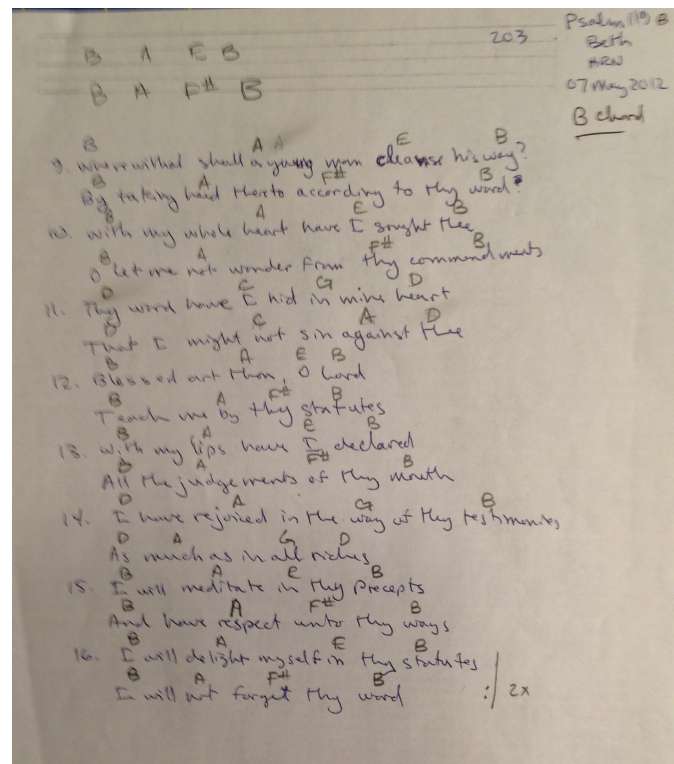 203
Psalm 119 B
Beth
ARN
07 May 2012
B chord
B A E B
B A F# B
B A A E B
9. wherewithal shall a young man cleanse his way?
B A F# B
By taking heed therto according to thy word.
B A E B
10. with my whole heart have I sought thee
B A F# B
O let me not wander from thy commandments
D C G D
11. Thy word have I hid in mine heart
D C A D
That I might not sin against thee
B A E B
12. Blessed art thou, O Lord
B A F# B
Teach me by thy statutes
B A E B
13. with my lips have I declared
B A F# B
All the judgements of thy mouth
D A G B
14. I have rejoiced in the way of thy testimonies
D A G D
As much as in all riches
B A E B
15. I will meditate in thy precepts
B A F# B
And have respect unto thy ways
B A E B
16. I will delight myself in thy statutes
B A F# B
I will not forget thy word :| 2x